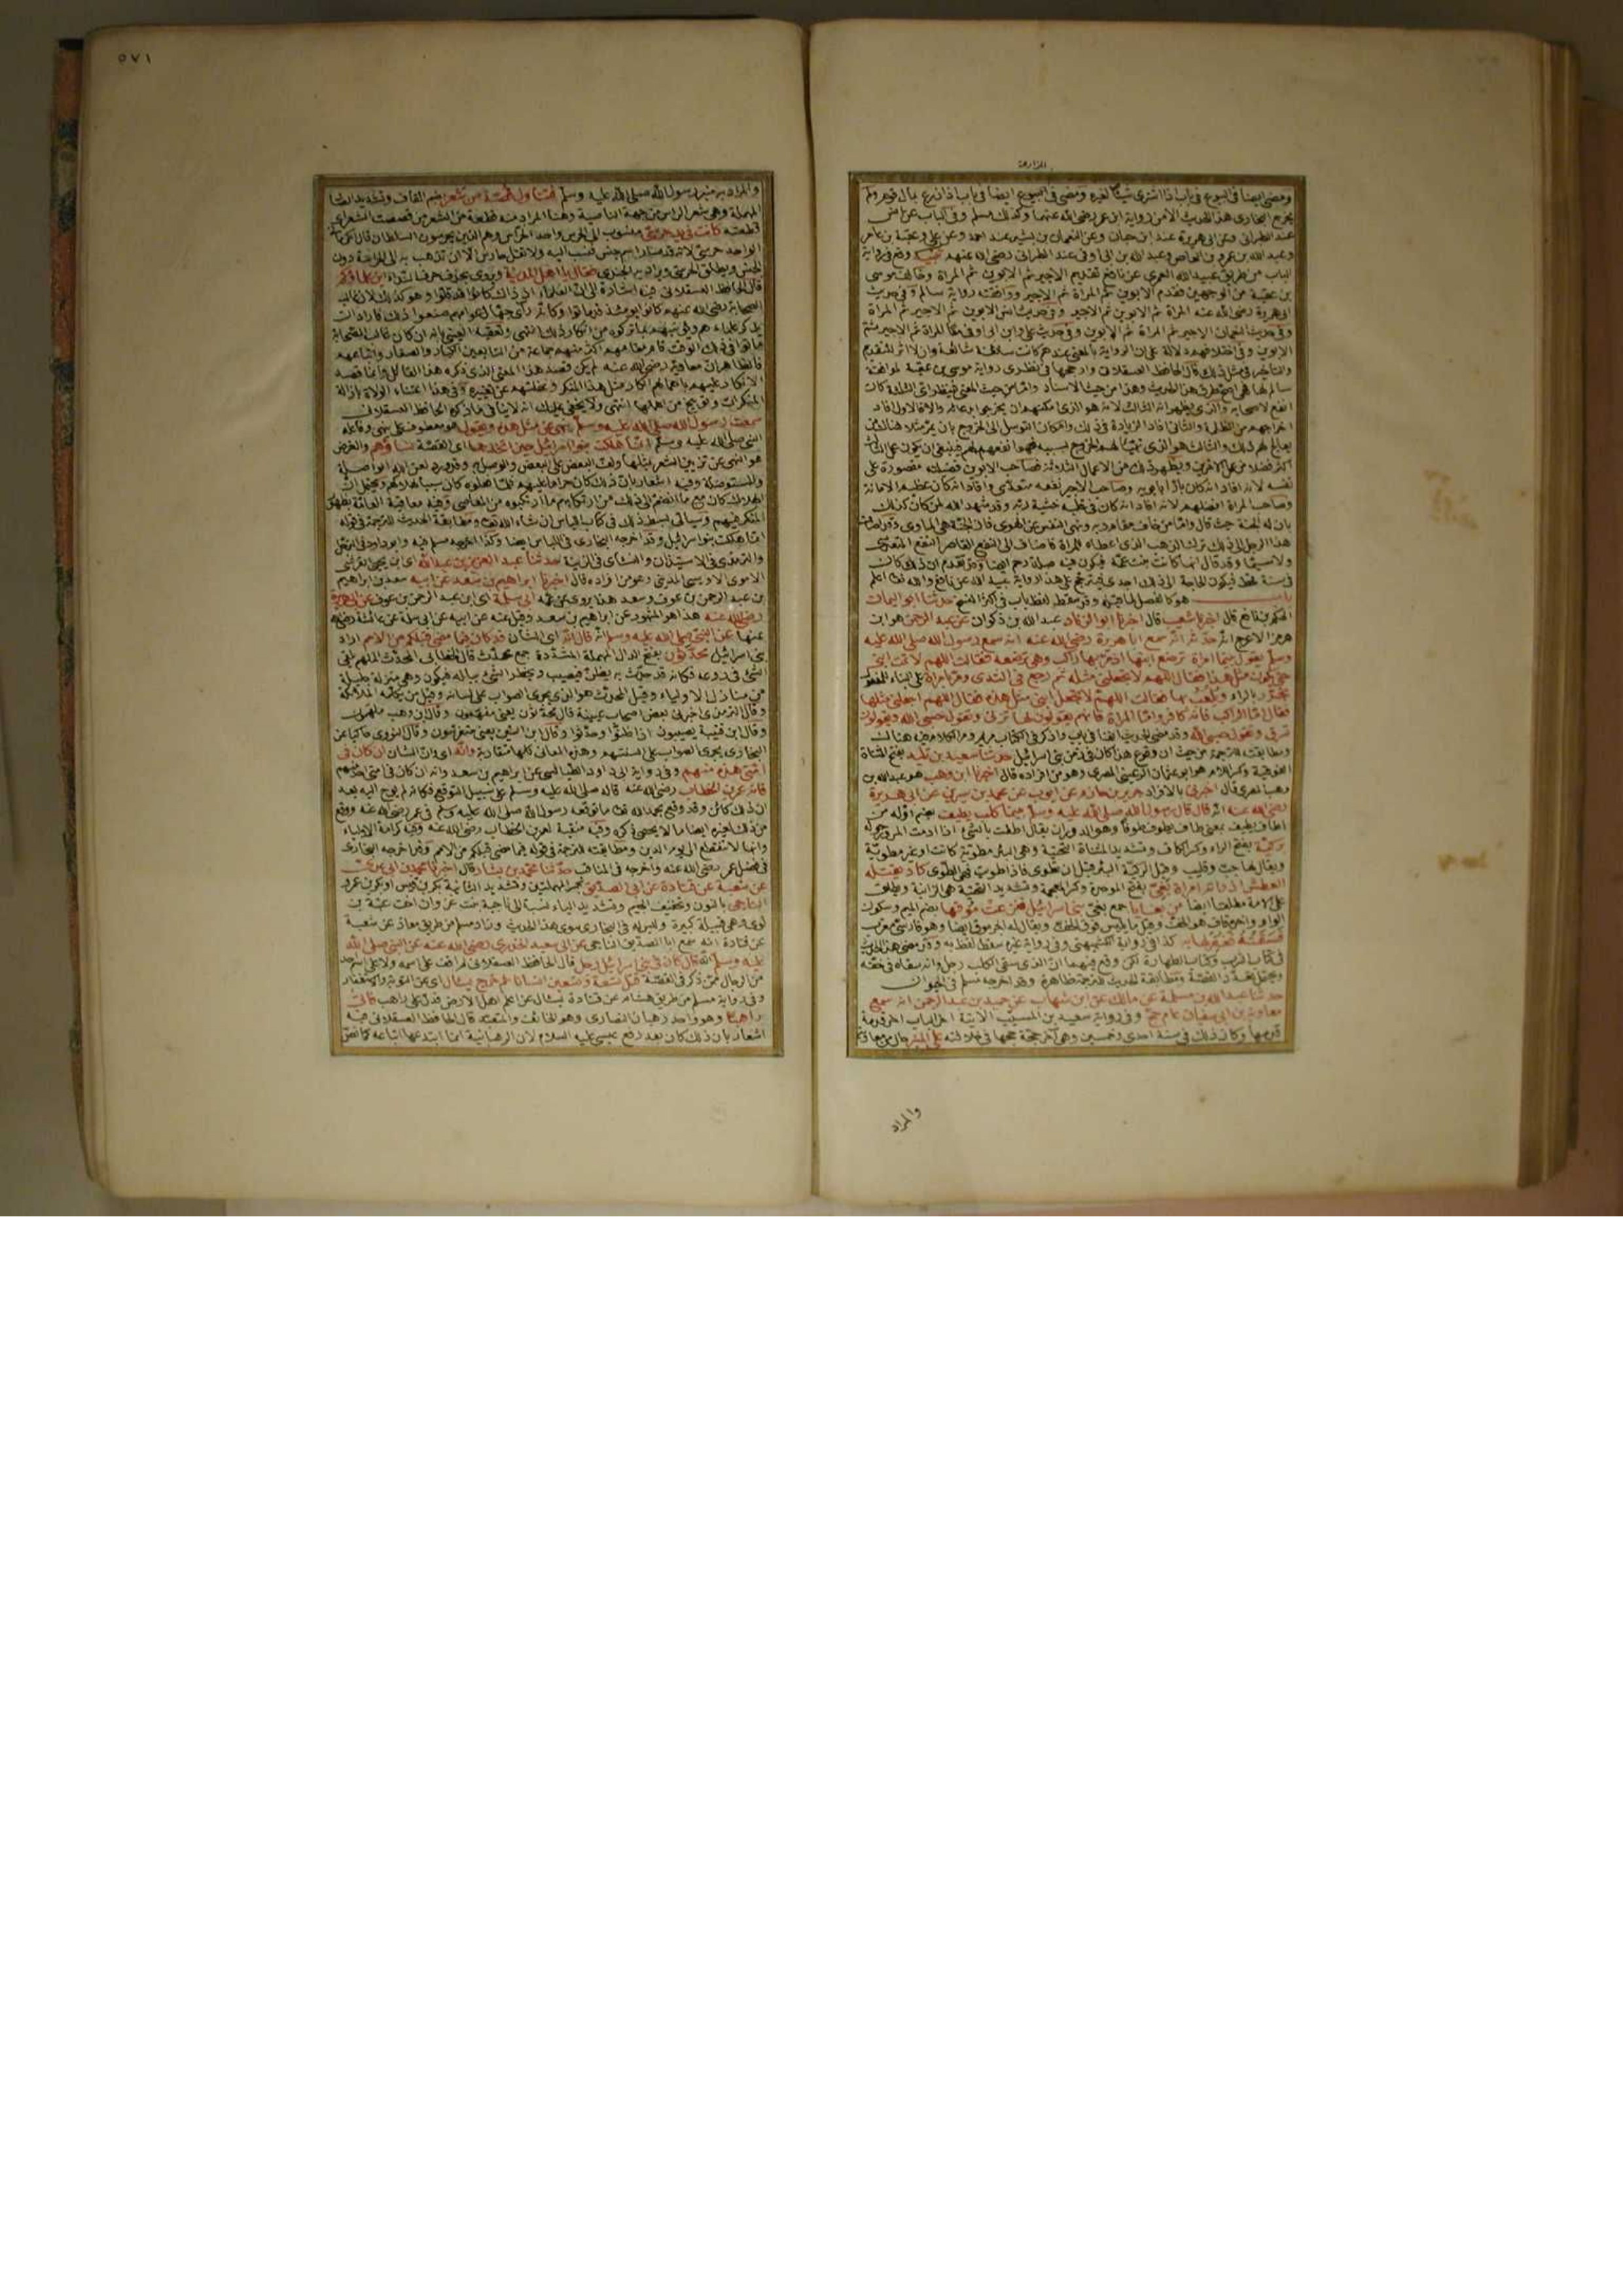 المزارعة
ومضى ايضا في البيوع في باب اذا اشترى شيئا لغيره ومضى في البيوع ايضا في باب اذا زرع بمال قوم ولم
يخرج البخاري هذا الحديث الا من رواية ابن عمر رضي الله عنهما وكذلك مسلم وفي الباب عن انس
عند الطبراني وعن ابي هريرة عند ابن حبان وعن النعمان بن بشير عند احمد وعن علي وعقبة بن عامر
وعبد الله بن عمرو بن العاص وعبد الله بن ابي اوفى عند الطبراني رضي الله عنهم
الباب من طريق عبيد الله العمري عن نافع تقديم الاجير ثم الابوين ثم المراة وخالف موسى
بن عقبة من الوجهين فقدم الابوين ثم المراة ثم الاجير ووافقته رواية سالم وفي حديث
ابي هريرة رضي الله عنه المراة ثم الابوين ثم الاجير وفي حديث انس الابوين ثم الاجير ثم المراة
وفي حديث النعمان الاجير ثم المراة ثم الابوين وفي حديث علي وابن ابي اوفى معا المراة ثم الاجير ثم
الابوين وفي اختلافهم دلالة على ان الرواية بالمعنى عندهم كانت سائغة شائعة وان لا اثر للتقديم
والتاخير في مثل ذلك قال الحافظ العسقلاني وارجحها في نظري رواية موسى بن عقبة لموافقة
سالم لها فهي اصح طرق هذا الحديث وهذا من حيث الاسناد واما من حيث المعنى فينظر اي الثلاثة كان
انفع لاصحابه والذي يظهر انه الثالث لانه هو الذي امكنهم ان يخرجوا بدعائه والا فالاول افاد
اخراجهم من الظلمة والثاني افاد الزيادة في ذلك وامكان التوسل الى الخروج بان يمر مثلا هناك من
يعالج لهم ذلك والثالث هو الذي تهيأ لهم الخروج بسببه فهو انفعهم لهم فينبغي ان يكون عمل الثالث
اكثر فضلا من عمل الآخرين ويظهر ذلك من الاعمال الثلاثة فصاحب الابوين فضيلته مقصورة على
نفسه لانه افاد انه كان بارا بابويه وصاحب الاجير نفعه متعدي وافاد انه كان عظيم الامانة
وصاحب المراة افضلهم لانه افاد انه كان في قلبه خشية ربه وقد شهد الله لمن كان كذلك
بان له الجنة حيث قال واما من خاف مقام ربه ونهى النفس عن الهوى فان الجنة هي الماوى وقد اضاف
هذا الرجل الى ذلك ترك الذهب الذي اعطاه للمراة فاضاف الى النفع القاصر النفع المتعدي
ولا سيما وقد قال انها كانت بنت عمه فيكون فيه صلة رحم ايضا وقد تقدم ان ذلك كان
في سنة قحط فيكون الحاجة الى ذلك احرى فيترجح على هذا رواية عبيد الله عن نافع والله تعالى اعلم
باب هو كالفصل لما قبله وقد سقط لفظ باب في اكثر النسخ حدثنا ابو اليمان
الحكم بن نافع قال اخبرنا شعيب قال اخبرنا ابو الزناد عبد الله بن ذكوان عن عبد الرحمن هو ابن
هرمز الاعرج انه حدثه انه سمع ابا هريرة رضي الله عنه انه سمع رسول الله صلى الله عليه
وسلم يقول بينا امراة ترضع ابنها اذ مر بها راكب وهي ترضعه فقالت اللهم لا تمت ابني
حتى يكون مثل هذا فقال اللهم لا تجعلني مثله ثم رجع في الثدي ومر بامراة على البناء للمفعول
تجرر بالراء ويلعب بها فقالت اللهم لا تجعل ابني مثل هذه فقال اللهم اجعلني مثلها
فقال اما الراكب فانه كافر واما المراة فانهم يقولون لها تزني وتقول حسبي الله ويقولون
تسرق وتقول حسبي الله وقد مضى الحديث ايضا في باب واذكر في الكتاب مريم ومر الكلام فيه هنالك
ومطابقته للترجمة من حيث ان وقوع هذا كان في زمن بني اسرائيل حدثنا سعيد بن تليد بفتح المثناة
الفوقية وكسر اللام هو ابو عثمان الرعيني المصري وهو من افراده قال اخبرنا ابن وهب هو عبد الله بن
وهب المصري قال اخبرني بالافراد جرير بن حازم عن ايوب عن محمد بن سيرين عن ابي هريرة
رضي الله عنه انه قال قال رسول الله صلى الله عليه وسلم بينما كلب يطيف بضم اوله من
اطاف يطيف بمعنى طاف يطوف طوفا وهو الدوران يقال اطفت بالشيء اذا ادمت المرور حوله
بركية بفتح الراء وكسر الكاف وتشديد المثناة التحتية وهي البئر مطوية كانت او غير مطوية
ويقال لها جب وقليب وقيل الركية البئر قبل ان تطوى فاذا طويت فهي الطوي كاد يقتله
العطش اذ راته امراة بغي بفتح الموحدة وكسر المعجمة وتشديد التحتية هي الزانية ويطلق
على الامة مطلقا ايضا من بغايا جمع بغي بني اسرائيل فنزعت موقها بضم الميم وسكون
الواو واخره قاف هو الخف وقيل ما يلبس فوق الخف ويقال له الجرموق ايضا وهو فارسي معرب
فسقته فغفر لها به كذا في رواية الكشميهني وفي رواية غيره سقط لفظ به وقد مضى هذا الحديث
في كتاب الشرب وكتاب الطهارة لكن وقع فيهما ان الذي سقى الكلب رجل وانه سقاه في خفه
ويحتمل تعدد القصة ومطابقة الحديث للترجمة ظاهرة وقد اخرجه مسلم في الحيوان
حدثنا عبد الله بن مسلمة عن مالك عن ابن شهاب عن حميد بن عبد الرحمن انه سمع
معاوية بن ابي سفيان عام حج وفي رواية سعيد بن المسيب الآتية آخر الباب آخر قدمة
قدمها وكان ذلك في سنة احدى وخمسين وهي آخر حجة حجها في خلافته على المنبر
والمراد
٥٧١
والمراد به منبر رسول الله صلى الله عليه وسلم فتناول قصة من شعر بضم القاف وتشديد الصاد
المهملة وهي شعر الراس من جهة الناصية وهنا المراد منه قطعة من الشعر من قصصت الشعر اي
قطعته كانت في يد حرسي منسوب الى الحرس واحد الحراس وهم الذين يحرسون السلطان قال الكرماني
الواحد حرسي لانه قد صار اسم جنس فنسب اليه ولا تقل حارس الا ان تذهب به الى الحراسة دون
الجنس ويطلق الحرسي ويراد به الجندي فقال يا اهل المدينة ويروى بحذف حرف النداء اين علماؤكم
قال الحافظ العسقلاني فيه اشارة الى ان العلماء اذ ذاك كانوا قد قلوا وهو كذلك لان غالب
الصحابة رضي الله عنهم كانوا يومئذ قد ماتوا وكانه راى جهال عوامهم صنعوا ذلك فاراد ان
يذكر علماءهم وينبههم بما تركوه من انكار ذلك انتهى وتعقبه العيني بانه ان كان غالب الصحابة
ماتوا في ذلك الوقت فقام مقامهم اكثر منهم جماعة من التابعين الكبار والصغار واتباعهم
فالظاهر ان معاوية رضي الله عنه لم يكن قصد هذا المعنى الذي ذكره هذا القائل وانما قصد
الانكار عليهم باهمالهم انكار مثل هذا المنكر وغفلتهم عن تغييره وفي هذا اعتناء الولاة بازالة
المنكرات وتوبيخ من اهملها انتهى ولا يخفى عليك انه لا ينافي ما ذكره الحافظ العسقلاني
سمعت رسول الله صلى الله عليه وسلم ينهى عن مثل هذه ويقول هو معطوف على ينهى وفاعله
النبي صلى الله عليه وسلم انما هلكت بنو اسرائيل حين اتخذها اي القصة نساؤهم والغرض
هو النهي عن تزيين الشعر بمثلها
والمستوصلة وفيه اشعار بان ذلك كان حراما عليهم فلما فعلوه كان سببا لهلاكهم ويحتمل ان
الهلاك كان مع ما انضم الى ذلك من ارتكابهم ما ارتكبوه من المعاصي وفيه معاقبة العامة بظهور
المنكر فيهم وسياتي بسط ذلك في كتاب اللباس ان شاء الله تعالى ومطابقة الحديث للترجمة في قوله
انما هلكت بنو اسرائيل وقد اخرجه البخاري في اللباس ايضا وكذا اخرجه مسلم فيه وابو داود في الترجل
والترمذي في الاستيذان والنسائي في الزينة حدثنا عبد العزيز بن عبد الله اي ابن يحيى القرشي
الاموي الاويسي المدني وهو من افراده قال اخبرنا ابراهيم بن سعد عن ابيه سعد بن ابراهيم
بن عبد الرحمن بن عوف وسعد هذا يروي عن عمه ابي سلمة اي ابن عبد الرحمن بن عوف عن ابي هريرة
رضي الله عنه هذا هو المشهور عن ابراهيم بن سعد وقيل عنه عن ابيه عن ابي سلمة عن عائشة رضي الله
عنها عن النبي صلى الله عليه وسلم انه قال انه اي الشان قد كان فيما مضى قبلكم من الامم اراد
بني اسرائيل محدثون بفتح الدال المهملة المشددة جمع محدث قال الخطابي المحدث الملهم يلقى
الشيء في روعه فكانه قد حدث به يظن فيصيب ويخطر الشيء بباله فيكون وهي منزلة جليلة
من منازل الاولياء وقيل المحدث هو الذي يجري الصواب على لسانه وقيل من تكلمه الملائكة
وقال الترمذي اخبرني بعض اصحاب عيينة قال محدثون يعني مفهمون وقال ابن وهب ملهمون
وقال ابن قتيبة يصيبون اذا ظنوا وحدثوا وقال ابن التين يعني متفرسون وقال النووي حاكيا عن
البخاري يجري الصواب على السنتهم وهذه المعاني كلها متقاربة وانه اي وان الشان ان كان في
امتي هذه منهم وفي رواية ابي داود الطيالسي عن ابراهيم بن سعد وانه ان كان في امتي احد منهم
فانه عمر بن الخطاب رضي الله عنه قاله صلى الله عليه وسلم على سبيل التوقع فكانه لم يوح اليه بعد
ان ذلك كائن وقد وقع بحمد الله تعالى ما توقعه رسول الله صلى الله عليه وسلم في عمر رضي الله عنه ووقع
من ذلك لغيره ايضا ما لا يحصى ذكره وفيه منقبة لعمر بن الخطاب رضي الله عنه وفيه كرامة الاولياء
وانها لا تنقطع الى يوم الدين ومطابقته للترجمة في قوله فيما مضى قبلكم من الامم وقد اخرجه البخاري
في فضل عمر رضي الله عنه واخرجه في المناقب حدثنا محمد بن بشار قال اخبرنا محمد بن ابي عدي
عن شعبة عن قتادة عن ابي الصديق بكسر المهملتين وتشديد الثانية بكر بن قيس او بكر بن عمرو
الناجي بالنون وتخفيف الجيم وتشديد الياء نسبة الى ناجية بنت غزوان اخت عتبة بن
لوي وهي قبيلة كبيرة وليس له في البخاري سوى هذا الحديث وزاد مسلم من طريق معاذ عن شعبة
عن قتادة انه سمع ابا الصديق الناجي عن ابي سعيد الخدري رضي الله عنه عن النبي صلى الله
عليه وسلم انه قال كان في بني اسرائيل رجل قال الحافظ العسقلاني لم اقف على اسمه ولا على اسم احد
من الرجال ممن ذكر في القصة قتل تسعة وتسعين انسانا ثم خرج يسال اي عن التوبة والاستغفار
وفي رواية مسلم من طريق هشام عن قتادة يسال عن اعلم اهل الارض فدل على راهب فاتى
راهبا وهو واحد رهبان النصارى وهو الخائف والمتعبد قال الحافظ العسقلاني فيه
اشعار بان ذلك كان بعد رفع عيسى عليه السلام لان الرهبانية انما ابتدعها اتباعه كما نص